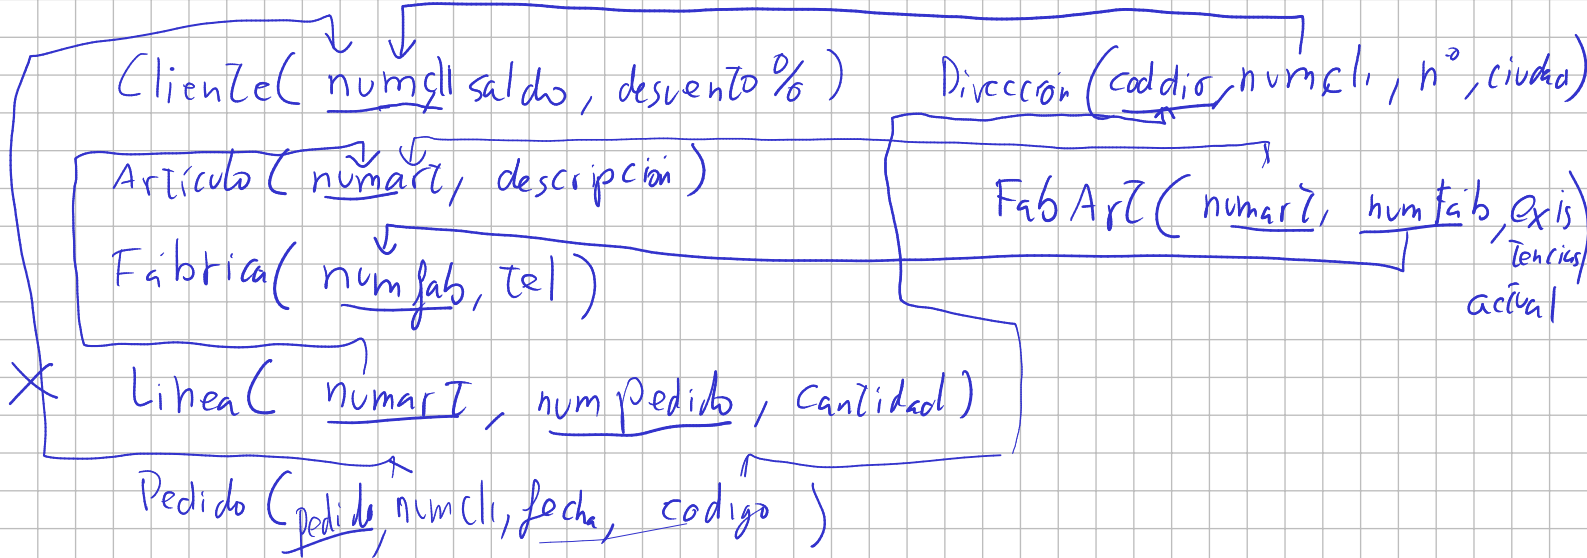 Cliente( numcli saldo, desvento %) Direccion (coddir, numcli, nº, ciudad)
Artículo ( numart, descripción)
FabArt( numart, numfab, exis
tencias)
actual
Fábrica( numfab, tel)
Linea( numart, numPedido, cantidad)
Pedido (pedido, numcli, fecha, codigo)